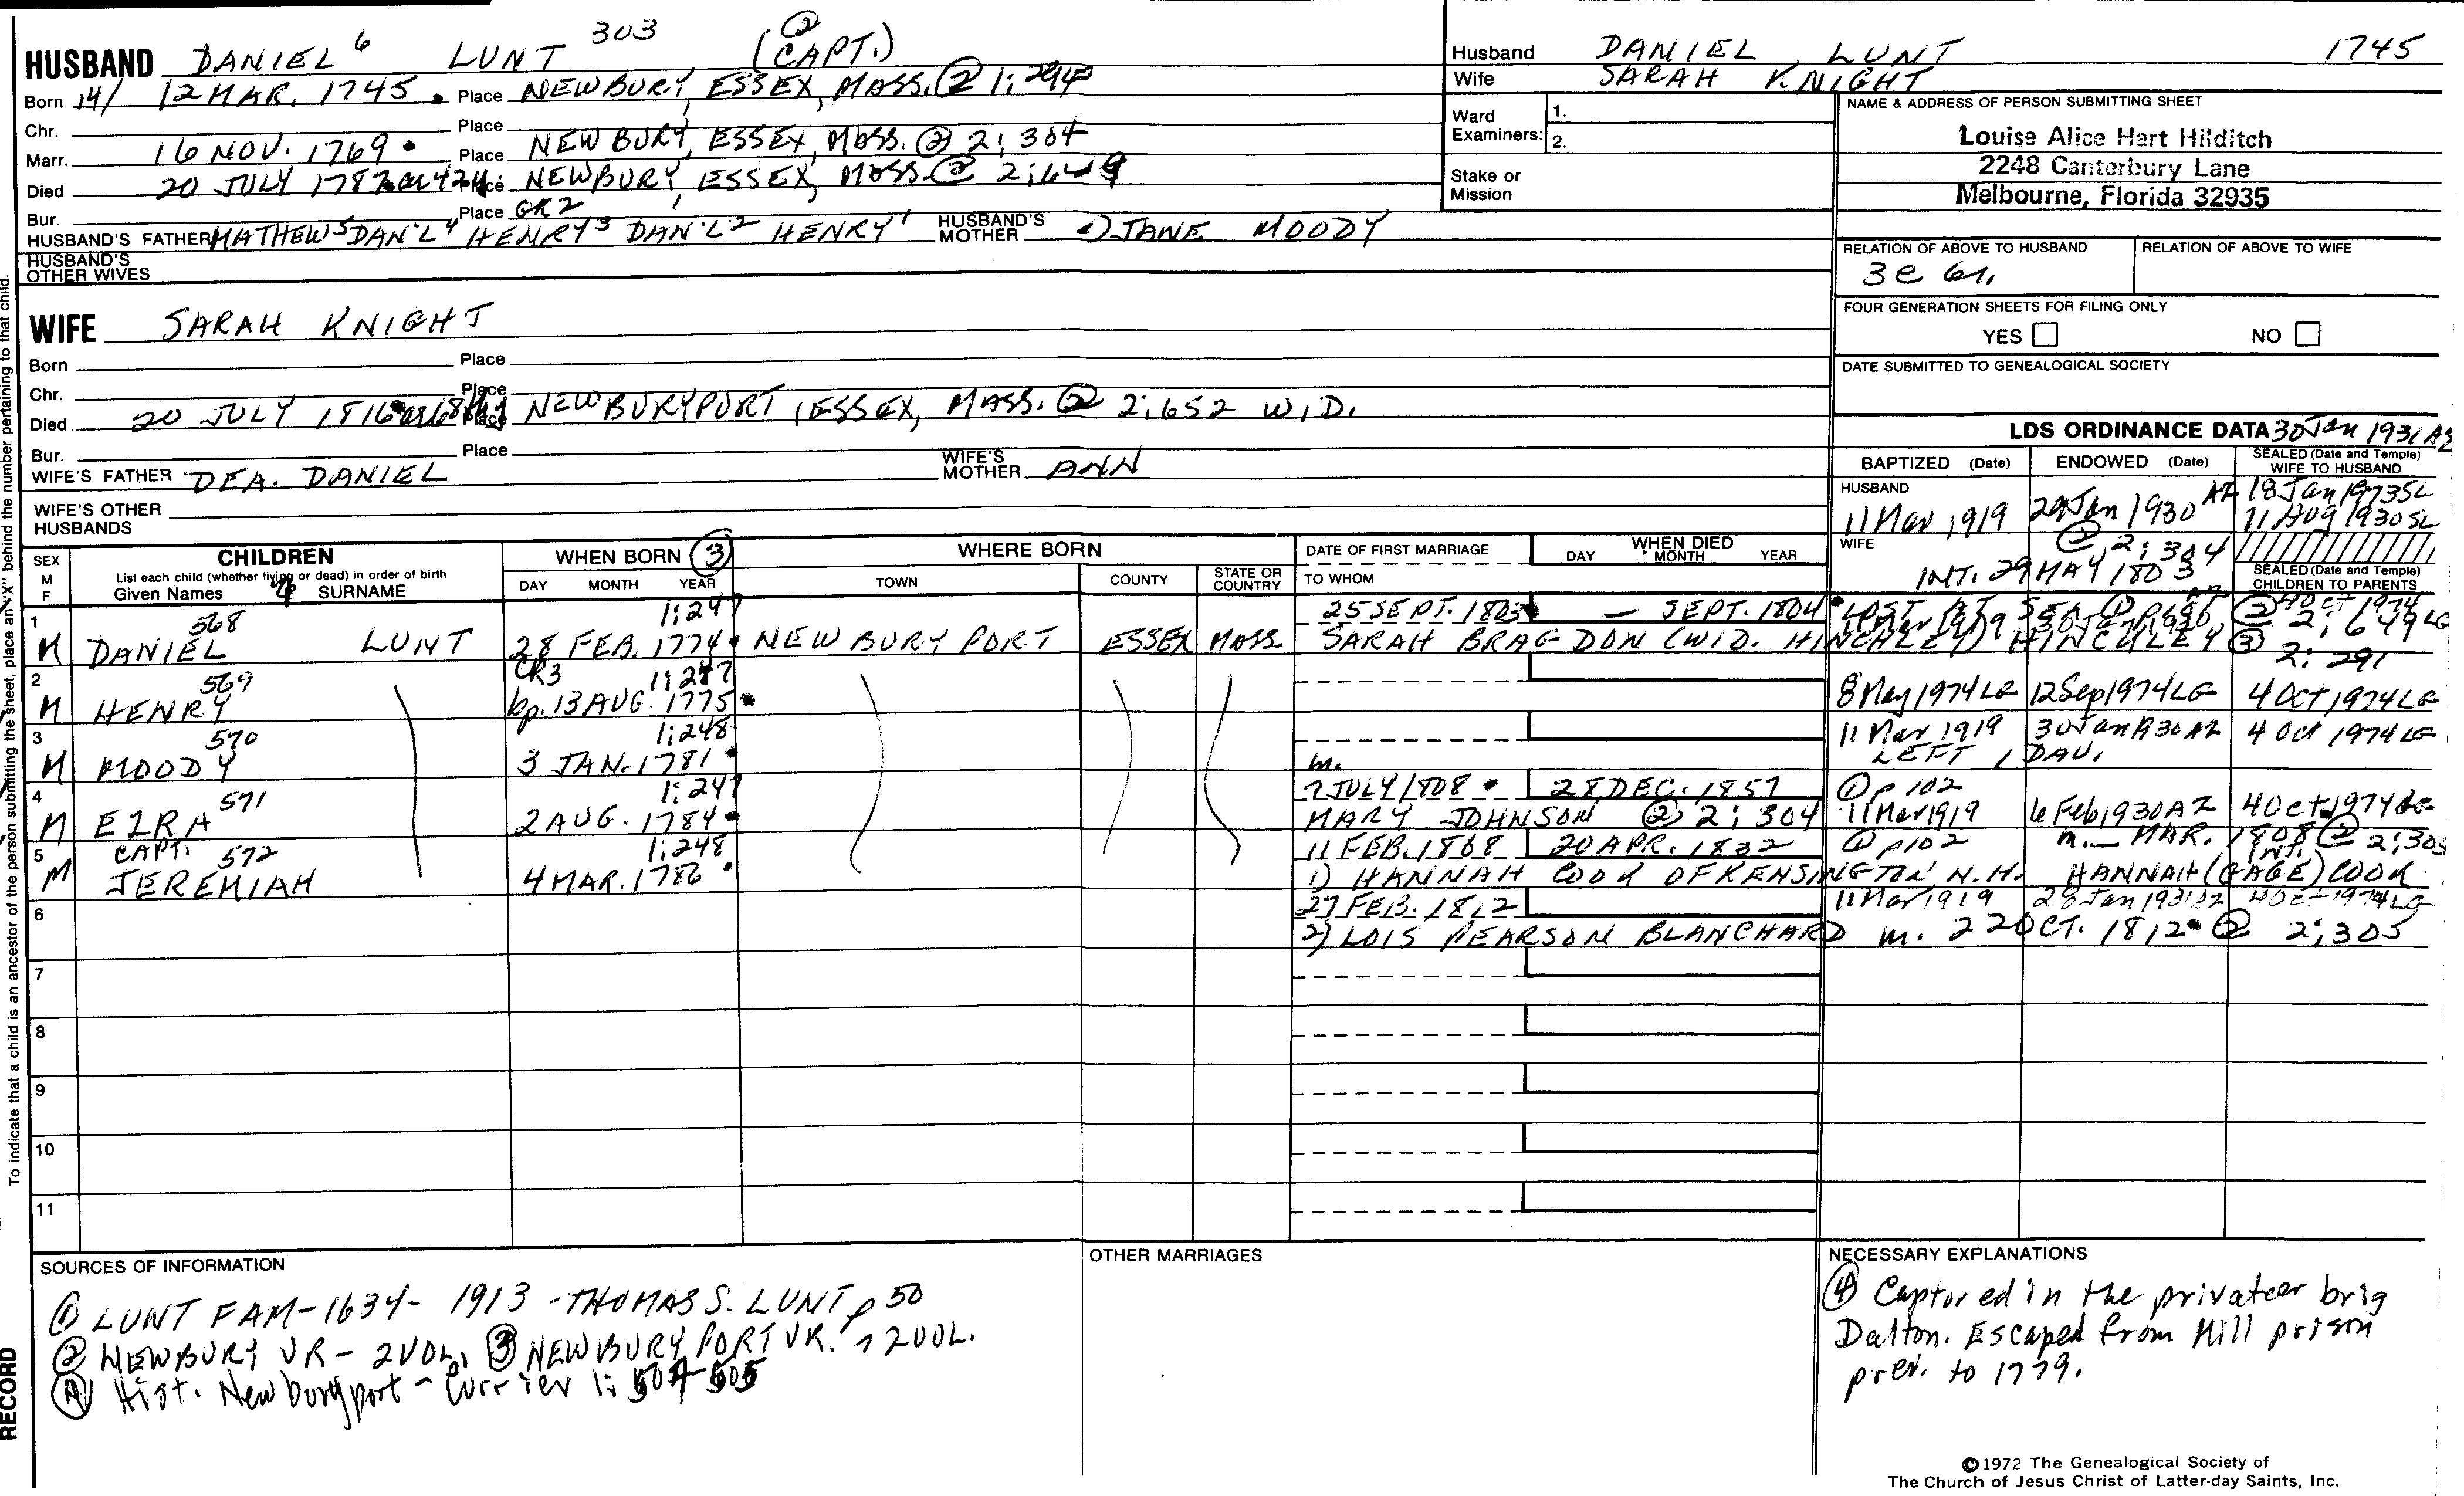 HUSBAND DANIEL 6 LUNT 303 (CAPT.) ②
Born 14/ 12 MAR. 1745 • Place NEWBURY, ESSEX, MASS. ② 1:294
Chr. Place
Marr. 16 NOV. 1769 • Place NEWBURY, ESSEX, MASS. ② 2:304
Died 20 JULY 1787 ae 42y Place NEWBURY, ESSEX, MASS. ② 2:649
Bur. Place GR2
HUSBAND'S FATHER MATHEW 5 DAN'L 4 HENRY 3 DAN'L 2 HENRY 1 HUSBAND'S MOTHER 1) JANE MOODY
HUSBAND'S OTHER WIVES
Husband DANIEL LUNT 1745
Wife SARAH KNIGHT
Ward Examiners: 1.
2.
Stake or Mission
NAME & ADDRESS OF PERSON SUBMITTING SHEET
Louise Alice Hart Hilditch
2248 Canterbury Lane
Melbourne, Florida 32935
RELATION OF ABOVE TO HUSBAND RELATION OF ABOVE TO WIFE
3c
FOUR GENERATION SHEETS FOR FILING ONLY
YES NO
DATE SUBMITTED TO GENEALOGICAL SOCIETY
WIFE SARAH KNIGHT
Born Place
Chr. Place
Died 20 JULY 1816 Place NEWBURYPORT, ESSEX, MASS. ② 2:652 WID.
Bur. Place
WIFE'S FATHER DEA. DANIEL WIFE'S MOTHER ANN
WIFE'S OTHER HUSBANDS
LDS ORDINANCE DATA 30 Jan 1931 AZ
BAPTIZED (Date) ENDOWED (Date) SEALED (Date and Temple) WIFE TO HUSBAND
HUSBAND
11 Mar 1919 29 Jan 1930 AZ 18 Jan 1973 SL
11 Aug 1930 SL
WIFE ② 2:304
INT. 29 MAY 1803
SEALED (Date and Temple) CHILDREN TO PARENTS
SEX M F CHILDREN List each child (whether living or dead) in order of birth Given Names SURNAME
WHEN BORN ③ DAY MONTH YEAR
WHERE BORN TOWN COUNTY STATE OR COUNTRY
DATE OF FIRST MARRIAGE TO WHOM
WHEN DIED DAY MONTH YEAR
1 568 1:247 25 SEPT. 1803 • — SEPT. 1804 • LOST AT SEA ① p 86 ② 2:649
M DANIEL LUNT 28 FEB. 1774 • NEWBURY PORT ESSEX MASS. SARAH BRAGDON (WID. HINCHLEY) HINCKLEY ③ 2:291
2 569 CR3 1:247
M HENRY bp. 13 AUG. 1775 • 8 May 1974 LG 12 Sep 1974 LG 4 Oct 1974 LG
3 570 1:248 11 Mar 1919 30 Jan 1930 AZ 4 Oct 1974 LG
M MOODY 3 JAN. 1781 • m. LEFT 1 DAU.
4 571 1:247 7 JULY 1808 • 28 DEC. 1857 ① p 102
M EZRA 2 AUG. 1784 • MARY JOHNSON ② 2:304 11 Mar 1919 6 Feb 1930 AZ 4 Oct 1974 LG
5 CAPT. 572 1:248 11 FEB. 1808 20 APR. 1832 ① p 102 m. — MAR. 1808 ② 2:305 INT.
M JEREMIAH 4 MAR. 1786 • 1) HANNAH COOK OF KENSINGTON, N.H. HANNAH (GAGE) COOK
6 27 FEB. 1812 11 Mar 1919 28 Jan 1931 AZ 4 Oct 1974 LG
2) LOIS PEARSON BLANCHARD m. 22 OCT. 1812 • ② 2:305
7
8
9
10
11
SOURCES OF INFORMATION
① LUNT FAM-1634- 1913 - THOMAS S. LUNT p 50
② NEWBURY VR- 2VOL. ③ NEWBURYPORT VR. 2 VOL.
④ Hist. Newburyport - Currier 1: 504-505
OTHER MARRIAGES
NECESSARY EXPLANATIONS
④ Captured in the privateer brig
Dalton. Escaped from Mill prison
prev. to 1779.
To indicate that a child is an ancestor of the person submitting the sheet, place an "X" behind the number pertaining to that child.
RECORD
©1972 The Genealogical Society of
The Church of Jesus Christ of Latter-day Saints, Inc.